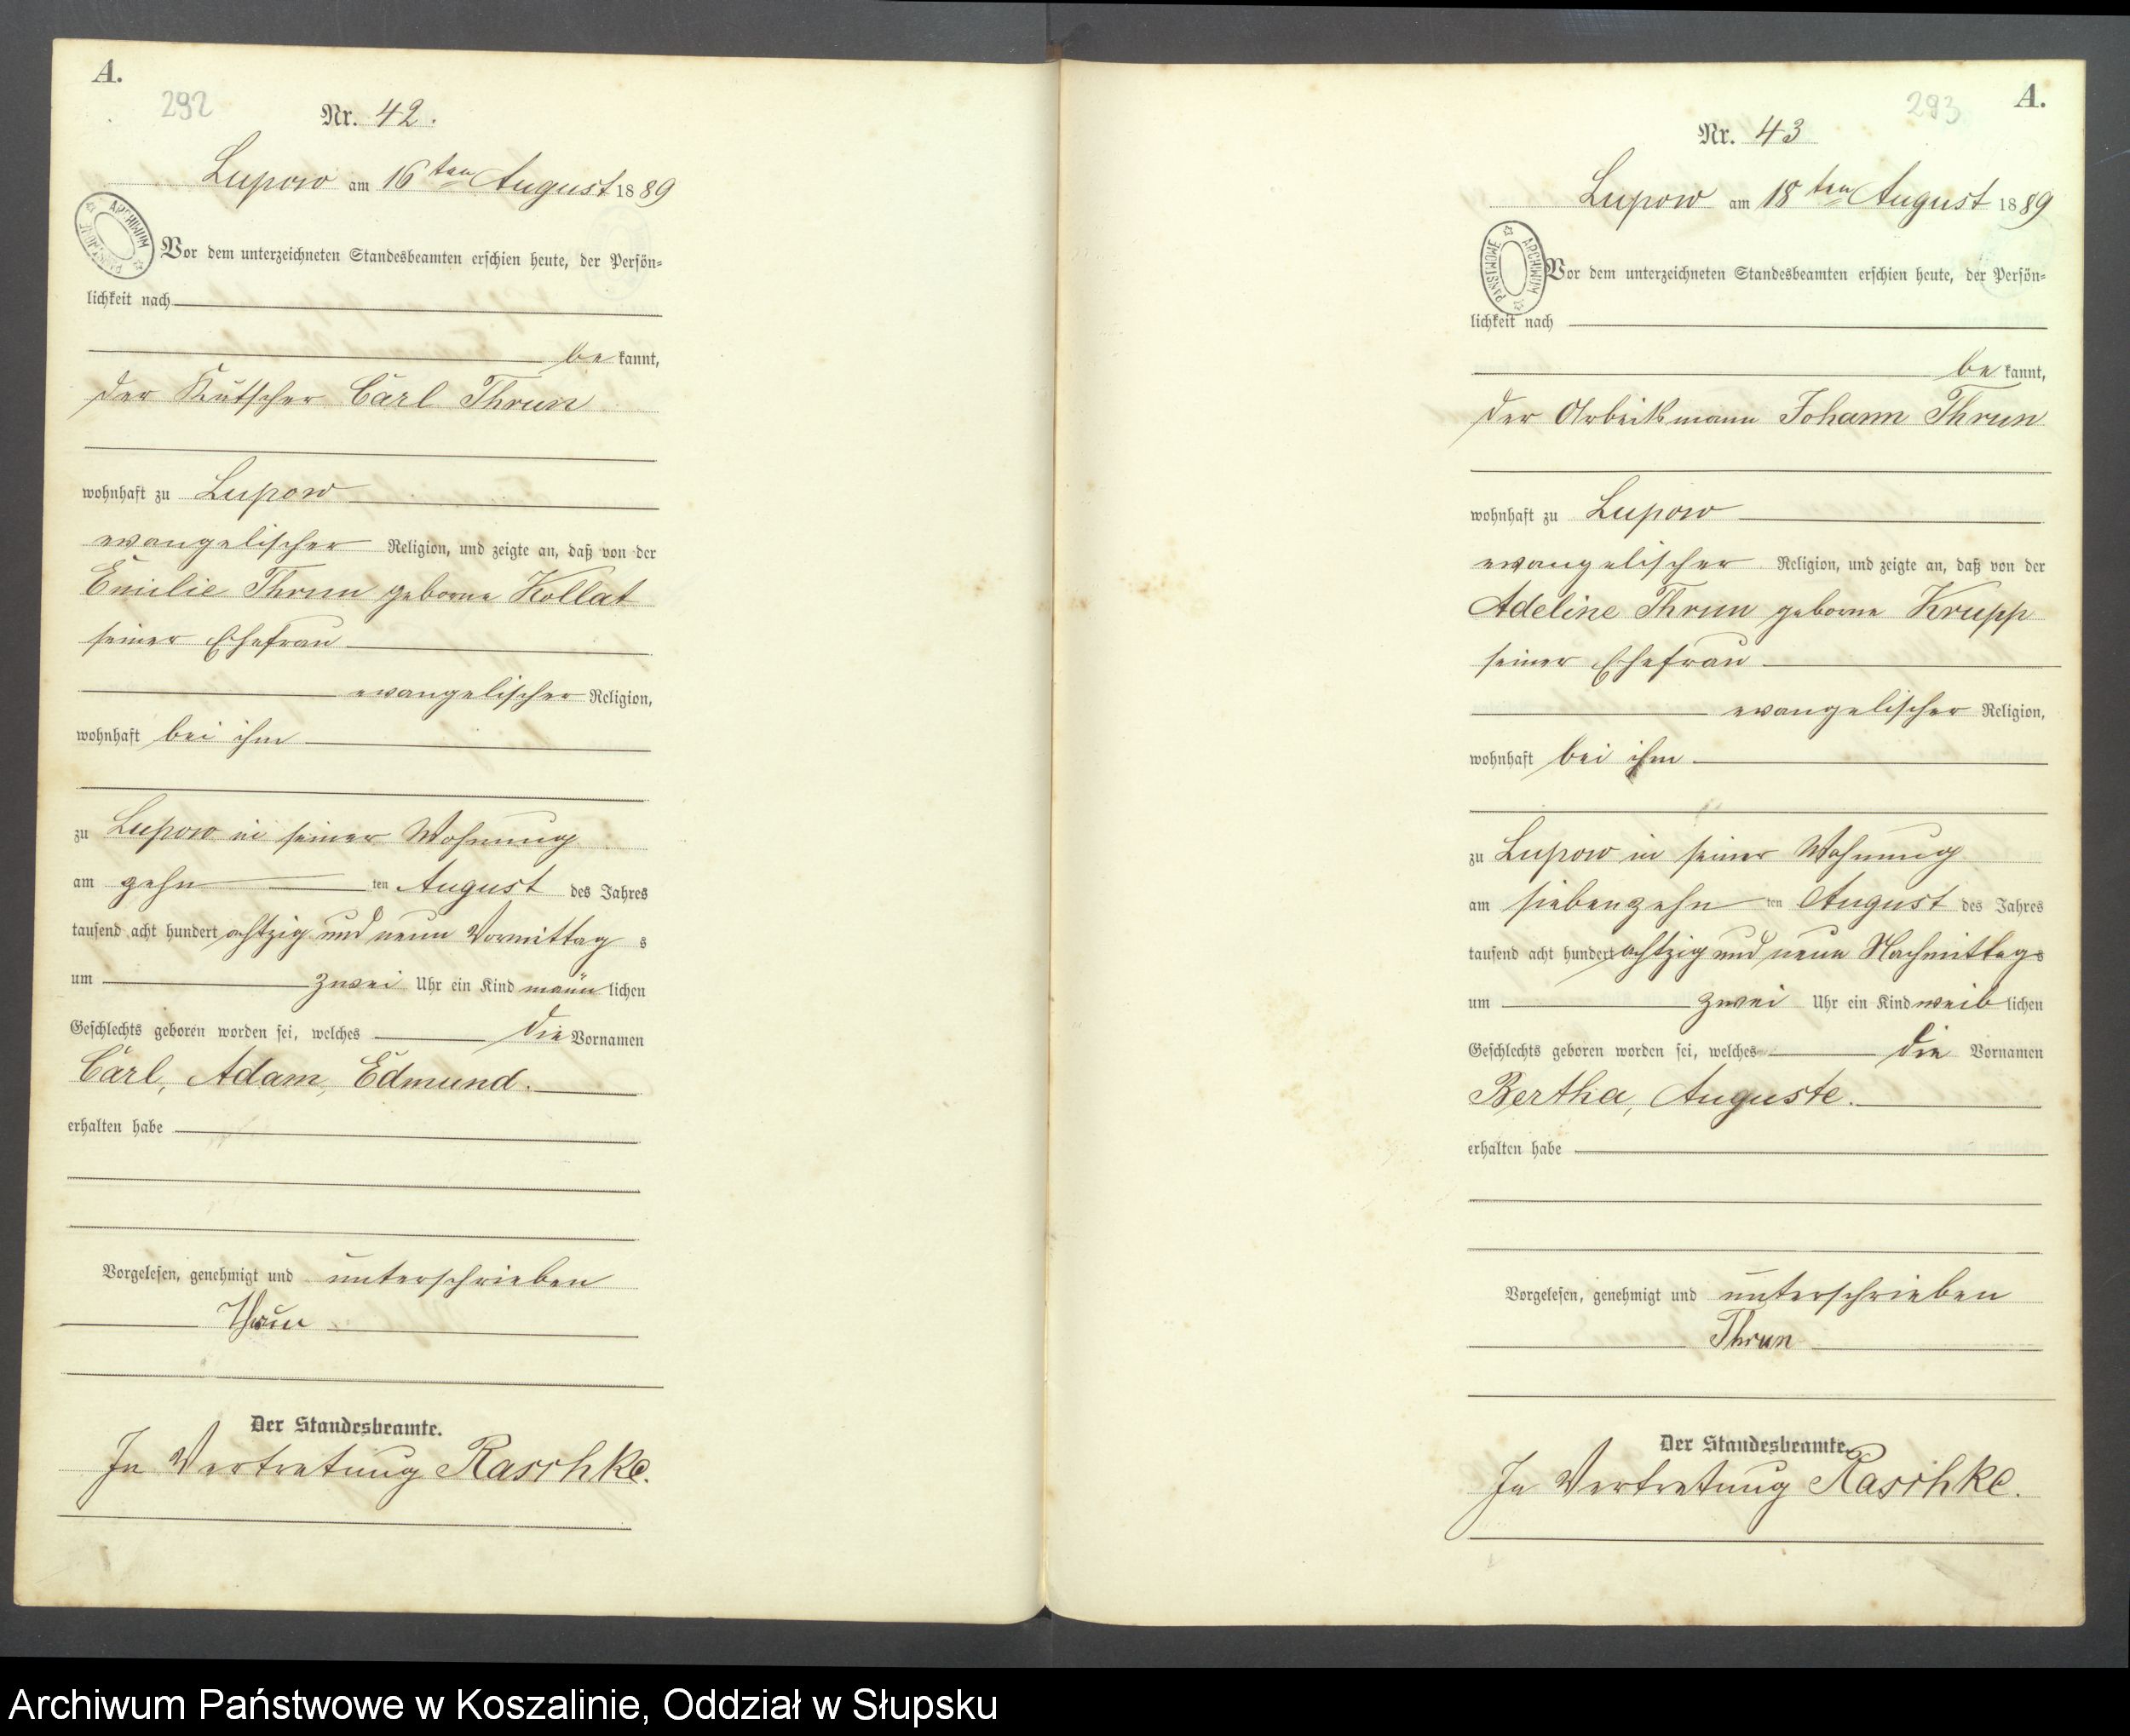 A.
292
Nr. 42.
Lupow am 16ten August 1889
ARCHIWUM PAŃSTWOWE
Vor dem unterzeichneten Standesbeamten erschien heute, der Persön=
lichkeit nach
be kannt,
der Kutscher Carl Thrun
wohnhaft zu Lupow
evangelischer Religion, und zeigte an, daß von der
Emilie Thrun geborne Kollat
seiner Ehefrau
evangelischer Religion,
wohnhaft bei ihm
zu Lupow in seiner Wohnung
am zehn ten August des Jahres
tausend acht hundert achtzig und neun Vormittag s
um zwei Uhr ein Kind männ lichen
Geschlechts geboren worden sei, welches die Vornamen
Carl, Adam, Edmund.
erhalten habe
Vorgelesen, genehmigt und unterschrieben
Thrun
Der Standesbeamte.
In Vertretung Raschke.
A.
293
Nr. 43
Lupow am 18ten August 1889
ARCHIWUM PAŃSTWOWE
Vor dem unterzeichneten Standesbeamten erschien heute, der Persön=
lichkeit nach
be kannt,
der Arbeitsmann Johann Thrun
wohnhaft zu Lupow
evangelischer Religion, und zeigte an, daß von der
Adeline Thrun geborne Krupp
seiner Ehefrau
evangelischer Religion,
wohnhaft bei ihm
zu Lupow in seiner Wohnung
am siebenzehn ten August des Jahres
tausend acht hundert achtzig und neun Nachmittags
um zwei Uhr ein Kind weib lichen
Geschlechts geboren worden sei, welches die Vornamen
Bertha, Auguste.
erhalten habe
Vorgelesen, genehmigt und unterschrieben
Thrun
Der Standesbeamte.
In Vertretung Raschke.
Archiwum Państwowe w Koszalinie, Oddział w Słupsku